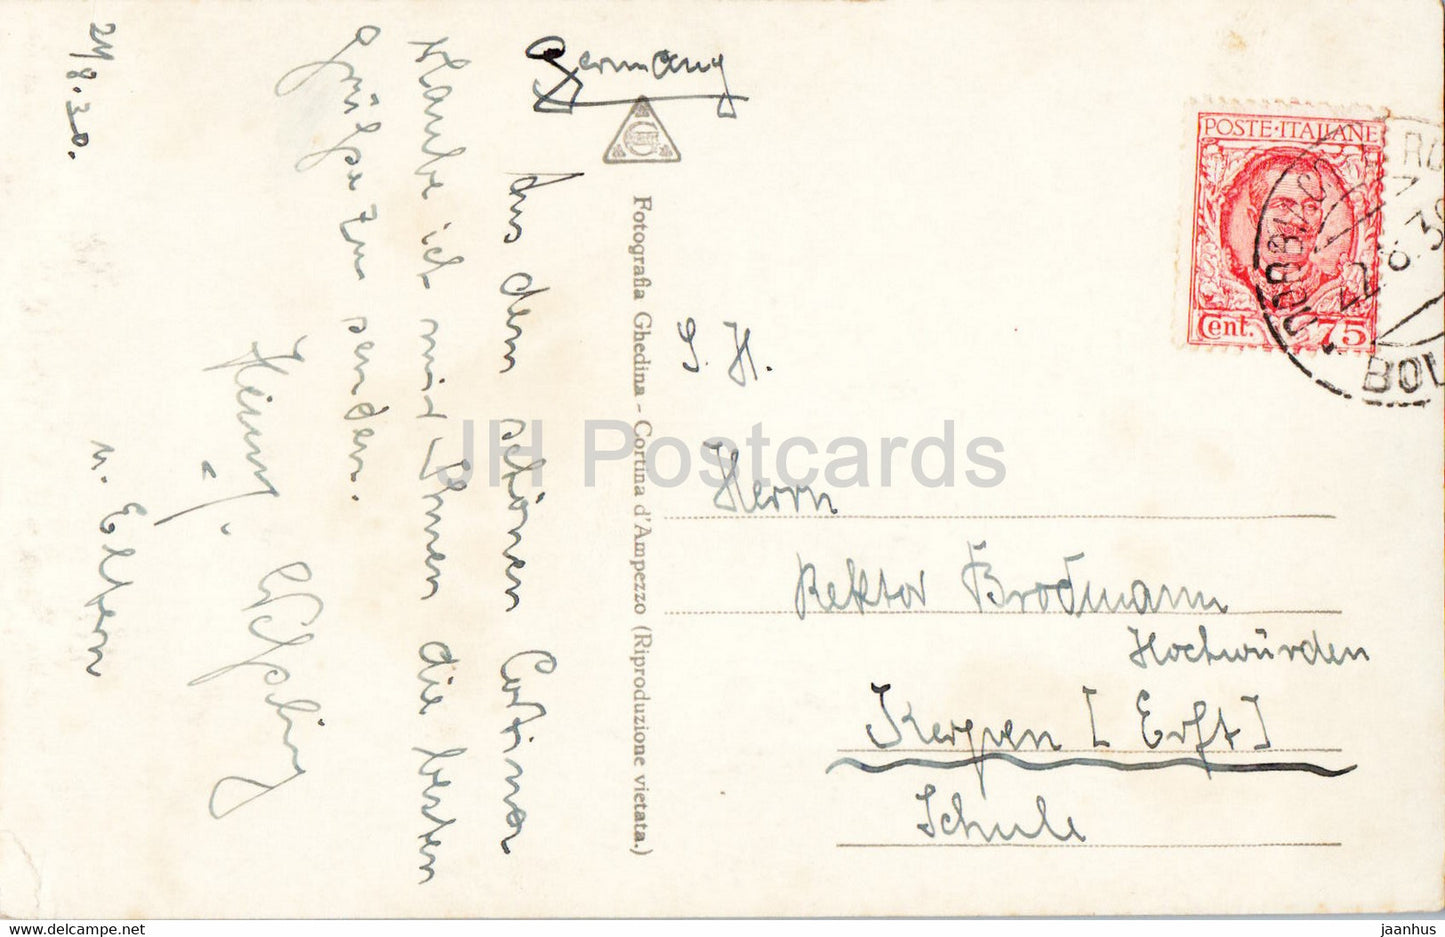 Germany
21/8.30.
Aus dem schönen Cortina
erlaube ich mir Ihnen die besten
Grüße zu senden.
Heinr. J.
u. Eltern
Fotografia Ghedina - Cortina d'Ampezzo (Riproduzione vietata.)
POSTE·ITALIANE
Cent. 75
BOL
S. H.
Herrn
Rektor Brodmann
Hochwürden
Kerpen [Erft]
Schule
JH Postcards
www.delcampe.net
jaanhus